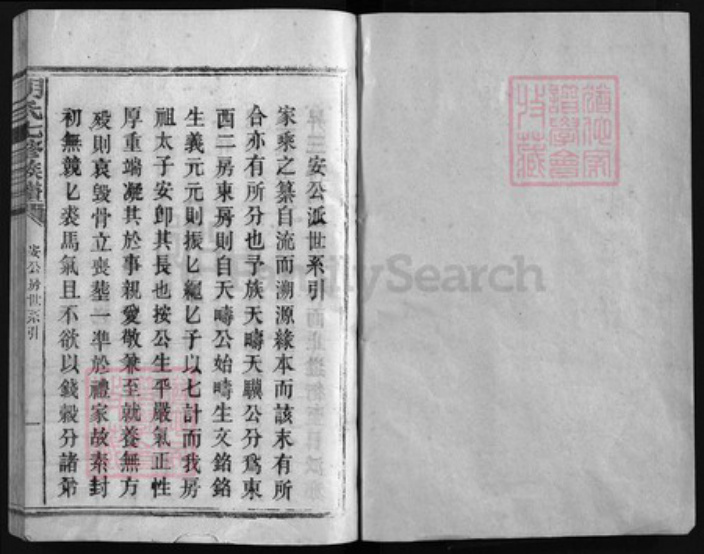 安公派世系引
家乘之纂自流而溯源緣本而該末有所
合亦有所分也予族天疇天驥公分爲東
西二房東房則自天疇公始疇生文銘銘
生義元元則振匕繩匕子以七計而我房
祖太子安卽其長也按公生平嚴氣正性
厚重端凝其於事親愛敬兼至就養無方
歿則哀毀骨立喪塟一準於禮家故素封
初無競匕裘馬氣且不欲以錢穀分諸弟
胡氏七修族譜
安公房世系引
一
猶他家
譜學會
特藏
FamilySearch